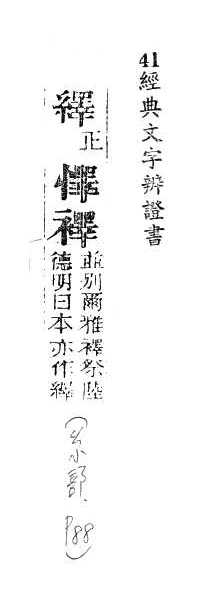 41經典文字辨證書
繹正
懌襗並別爾雅襗祭陸
德明曰本亦作繹
(糸部, P88)